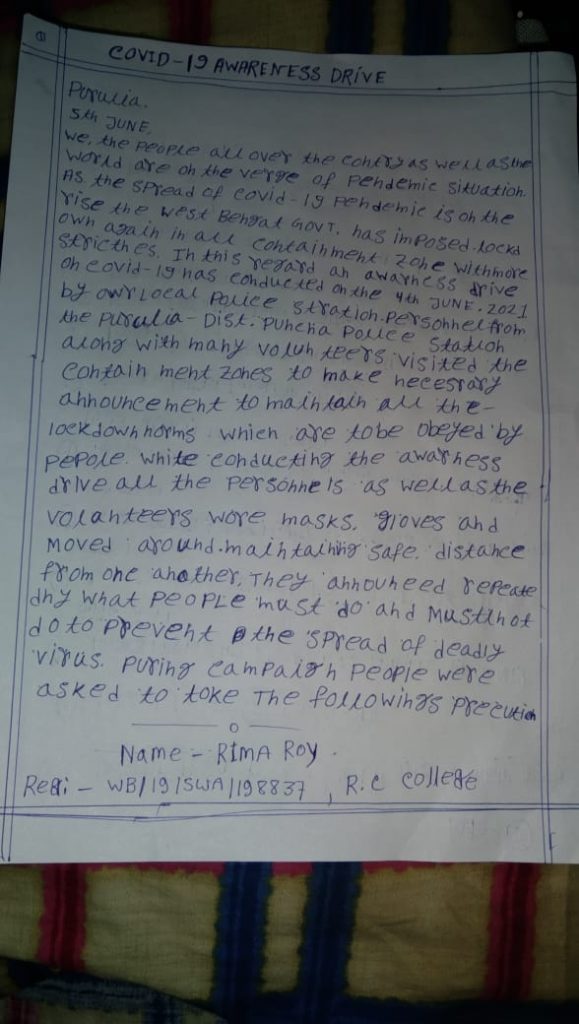 ①
COVID-19 AWARENESS DRIVE
Purulia.
5th JUNE,
We, the People all over the contry as well as the
World are on the verge of Pendemic situation.
As the spread of covid-19 Pendemic is on the
rise the West Bengal Govt. has imposed lockd
own again in all containment zone with more
stricthes. In this regard an awarness drive
on covid-19 has conducted on the 4th JUNE. 2021
by own Local Police stration. Personnel from
the Purulia - Dist. Puncha Police Station
along with many volun teers visited the
contain ment zones to make necesrary
announcement to maintain all the-
lockdown norms which are to be obeyed by
Pepole. White conducting the awarness
drive all the Personnels as well as the
volanteers wore masks, gloves and
moved around. maintaining safe distance
from one another, They annouheed refeate
dny what PeoPle must do and Must not
do to Prevent the spread of deadly
virus. Puring campaign People were
asked to toke The followings Precution
o
Name - RIMA ROY.
Regi - WB/19/SWA/198837, R.C college